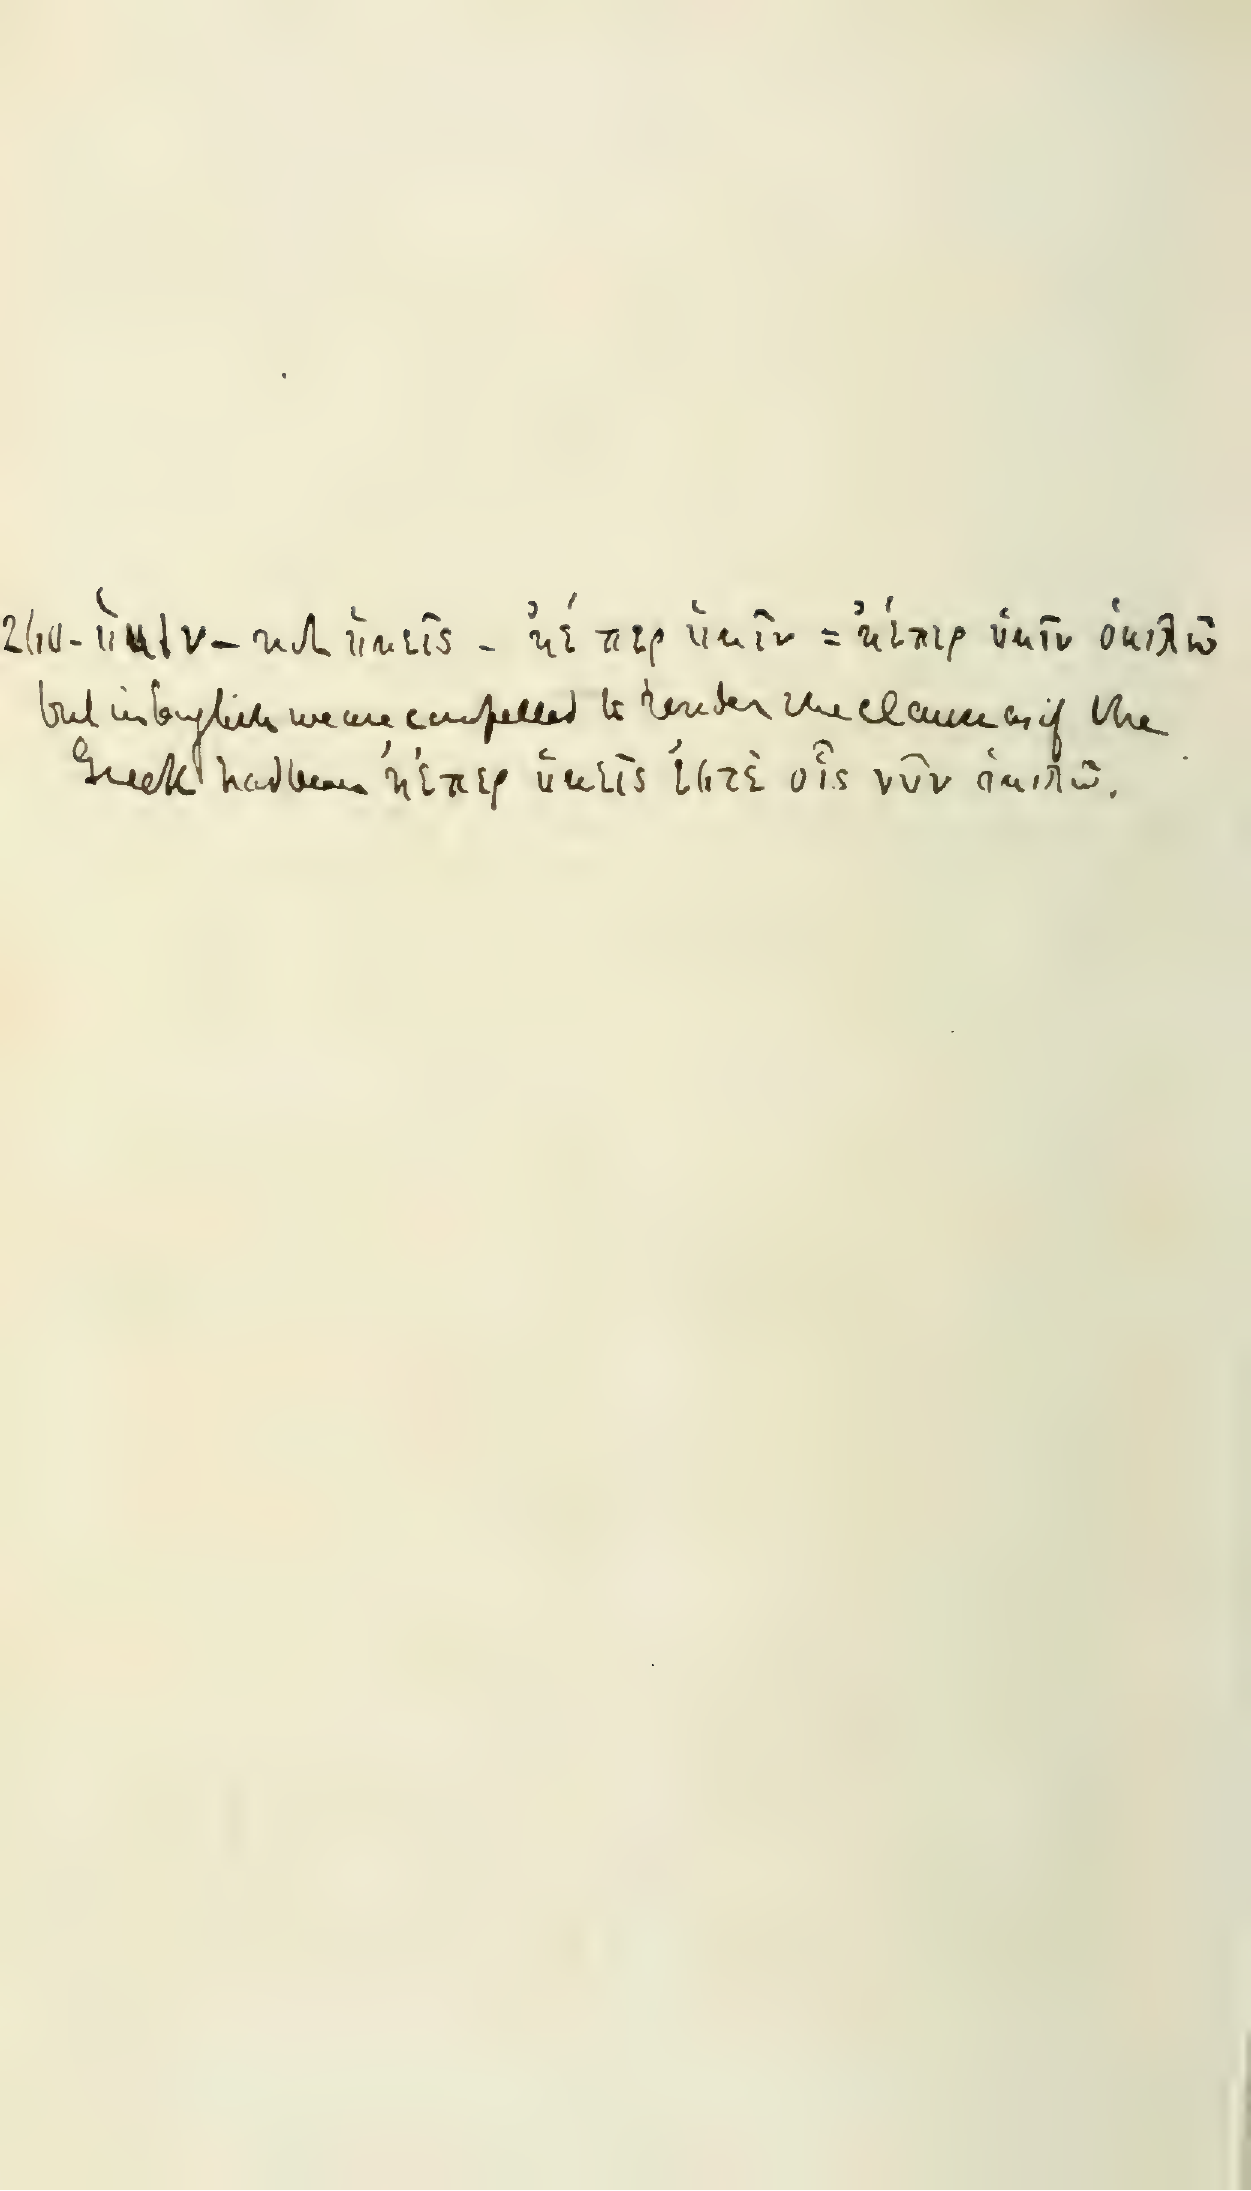 ὑμῖν - not ὑμεῖς - ἤέ περ ὑμῖν = ἤέπερ ὑμῖν ὁμιλῶ
but in English we are compelled to render the clause as if the
Greek had been ἤέπερ ὑμεῖς ἐστὲ οἷς νῦν ὁμιλῶ.